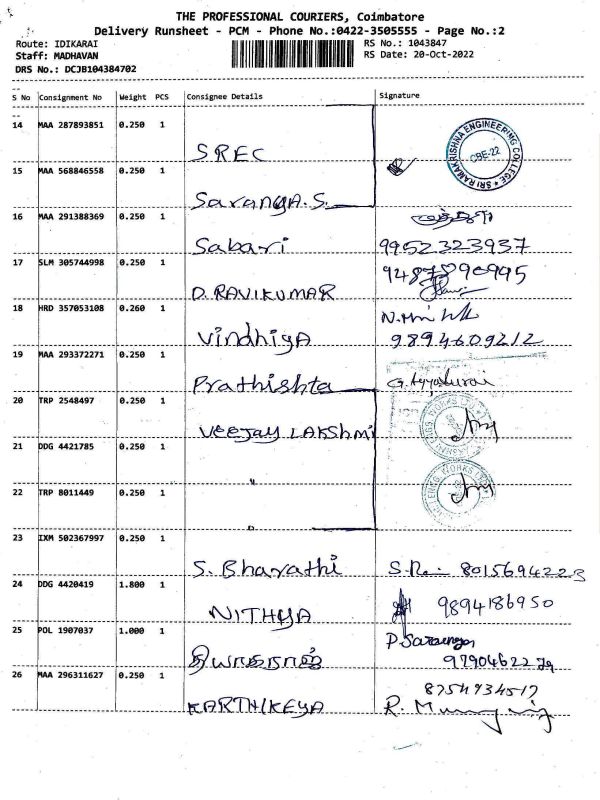 THE PROFESSIONAL COURIERS, Coimbatore
Delivery Runsheet - PCM - Phone No.:0422-3505555 - Page No.:2
Route: IDIKARAI RS No.: 1043847
Staff: MADHAVAN RS Date: 20-Oct-2022
DRS No.: DCJB104384702
S No Consignment No Weight PCS Consignee Details Signature
14 MAA 287893851 0.250 1
SREC
SRI RAMAKRISHNA ENGINEERING COLLEGE CBE-22
15 MAA 568846558 0.250 1
Saranya.S.
16 MAA 291388369 0.250 1
Sabari 9952323937
17 SLM 305744998 0.250 1
D. RAVIKUMAR
18 HRD 357053108 0.260 1
Vindhiya 9894609212
19 MAA 293372271 0.250 1
Prathishta
20 TRP 2548497 0.250 1
VEEJAY LAKSHMI
21 DDG 4421785 0.250 1
"
22 TRP 8011449 0.250 1
"
23 IXM 502367997 0.250 1
S. Bharathi 8015694223
24 DDG 4420419 1.800 1
NITHYA 9894186950
25 POL 1907037 1.000 1
தியாகராஜ்
26 MAA 296311627 0.250 1
8754934517
KARTHIKEYA